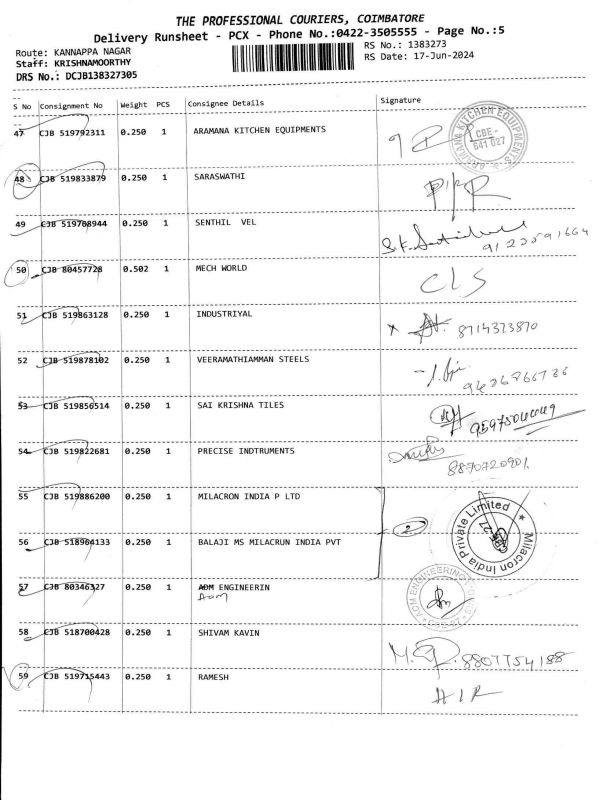 THE PROFESSIONAL COURIERS, COIMBATORE
Delivery Runsheet - PCX - Phone No.:0422-3505555 - Page No.:5
Route: KANNAPPA NAGAR
Staff: KRISHNAMOORTHY
DRS No.: DCJB138327305
RS No.: 1383273
RS Date: 17-Jun-2024
S No Consignment No Weight PCS Consignee Details Signature
47 CJB 519792311 0.250 1 ARAMANA KITCHEN EQUIPMENTS
ARAMANA KITCHEN EQUIPMENTS CBE- 641 027
48 CJB 519833879 0.250 1 SARASWATHI
49 CJB 519708944 0.250 1 SENTHIL VEL
50 CJB 80457728 0.502 1 MECH WORLD CLS
51 CJB 519863128 0.250 1 INDUSTRIYAL x 8714323870
52 CJB 519878102 0.250 1 VEERAMATHIAMMAN STEELS
53 CJB 519856514 0.250 1 SAI KRISHNA TILES
54 CJB 519822681 0.250 1 PRECISE INDTRUMENTS 8870720901
55 CJB 519886200 0.250 1 MILACRON INDIA P LTD
Milacron India Private Limited
56 CJB 518964133 0.250 1 BALAJI MS MILACRUN INDIA PVT 2
57 CJB 80346327 0.250 1 AOM ENGINEERIN
AOM
58 CJB 518700428 0.250 1 SHIVAM KAVIN 8807754188
59 CJB 519715443 0.250 1 RAMESH